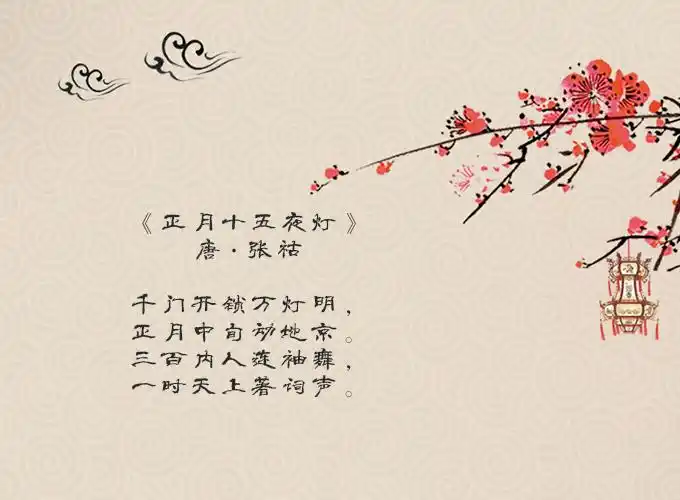 《正月十五夜灯》
唐·张祜
千门开锁万灯明，
正月中旬动地京。
三百内人连袖舞，
一时天上著词声。